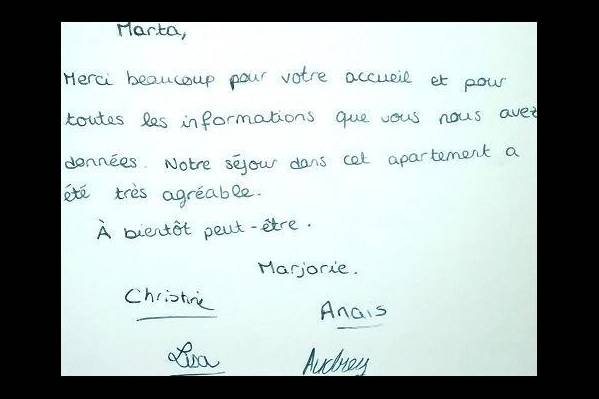 Marta,
Merci beaucoup pour votre accueil et pour
toutes les informations que vous nous avez
données. Notre séjour dans cet apartement a
été très agréable.
À bientôt peut-être.
Marjorie.
Christine
Anais
Lisa
Audrey